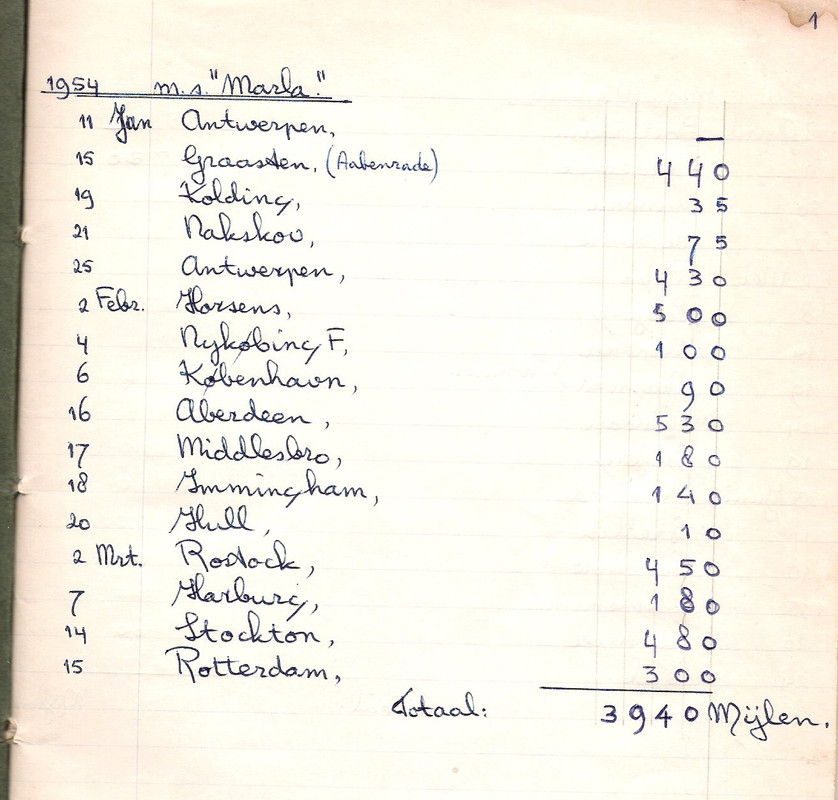 1
1954 m.s. "Marla."
11 Jan Antwerpen, —
15 Graasten, (Aabenrade) 440
19 Kolding, 35
21 Nakskov, 75
25 Antwerpen, 430
2 Febr. Horsens, 500
4 Nykøbing F, 100
6 København, 90
16 Aberdeen, 530
17 Middlesbro, 180
18 Immingham, 140
20 Hull, 10
2 Mrt. Rostock, 450
7 Harburg, 180
14 Stockton, 480
15 Rotterdam, 300
Totaal: 3940 Mijlen.